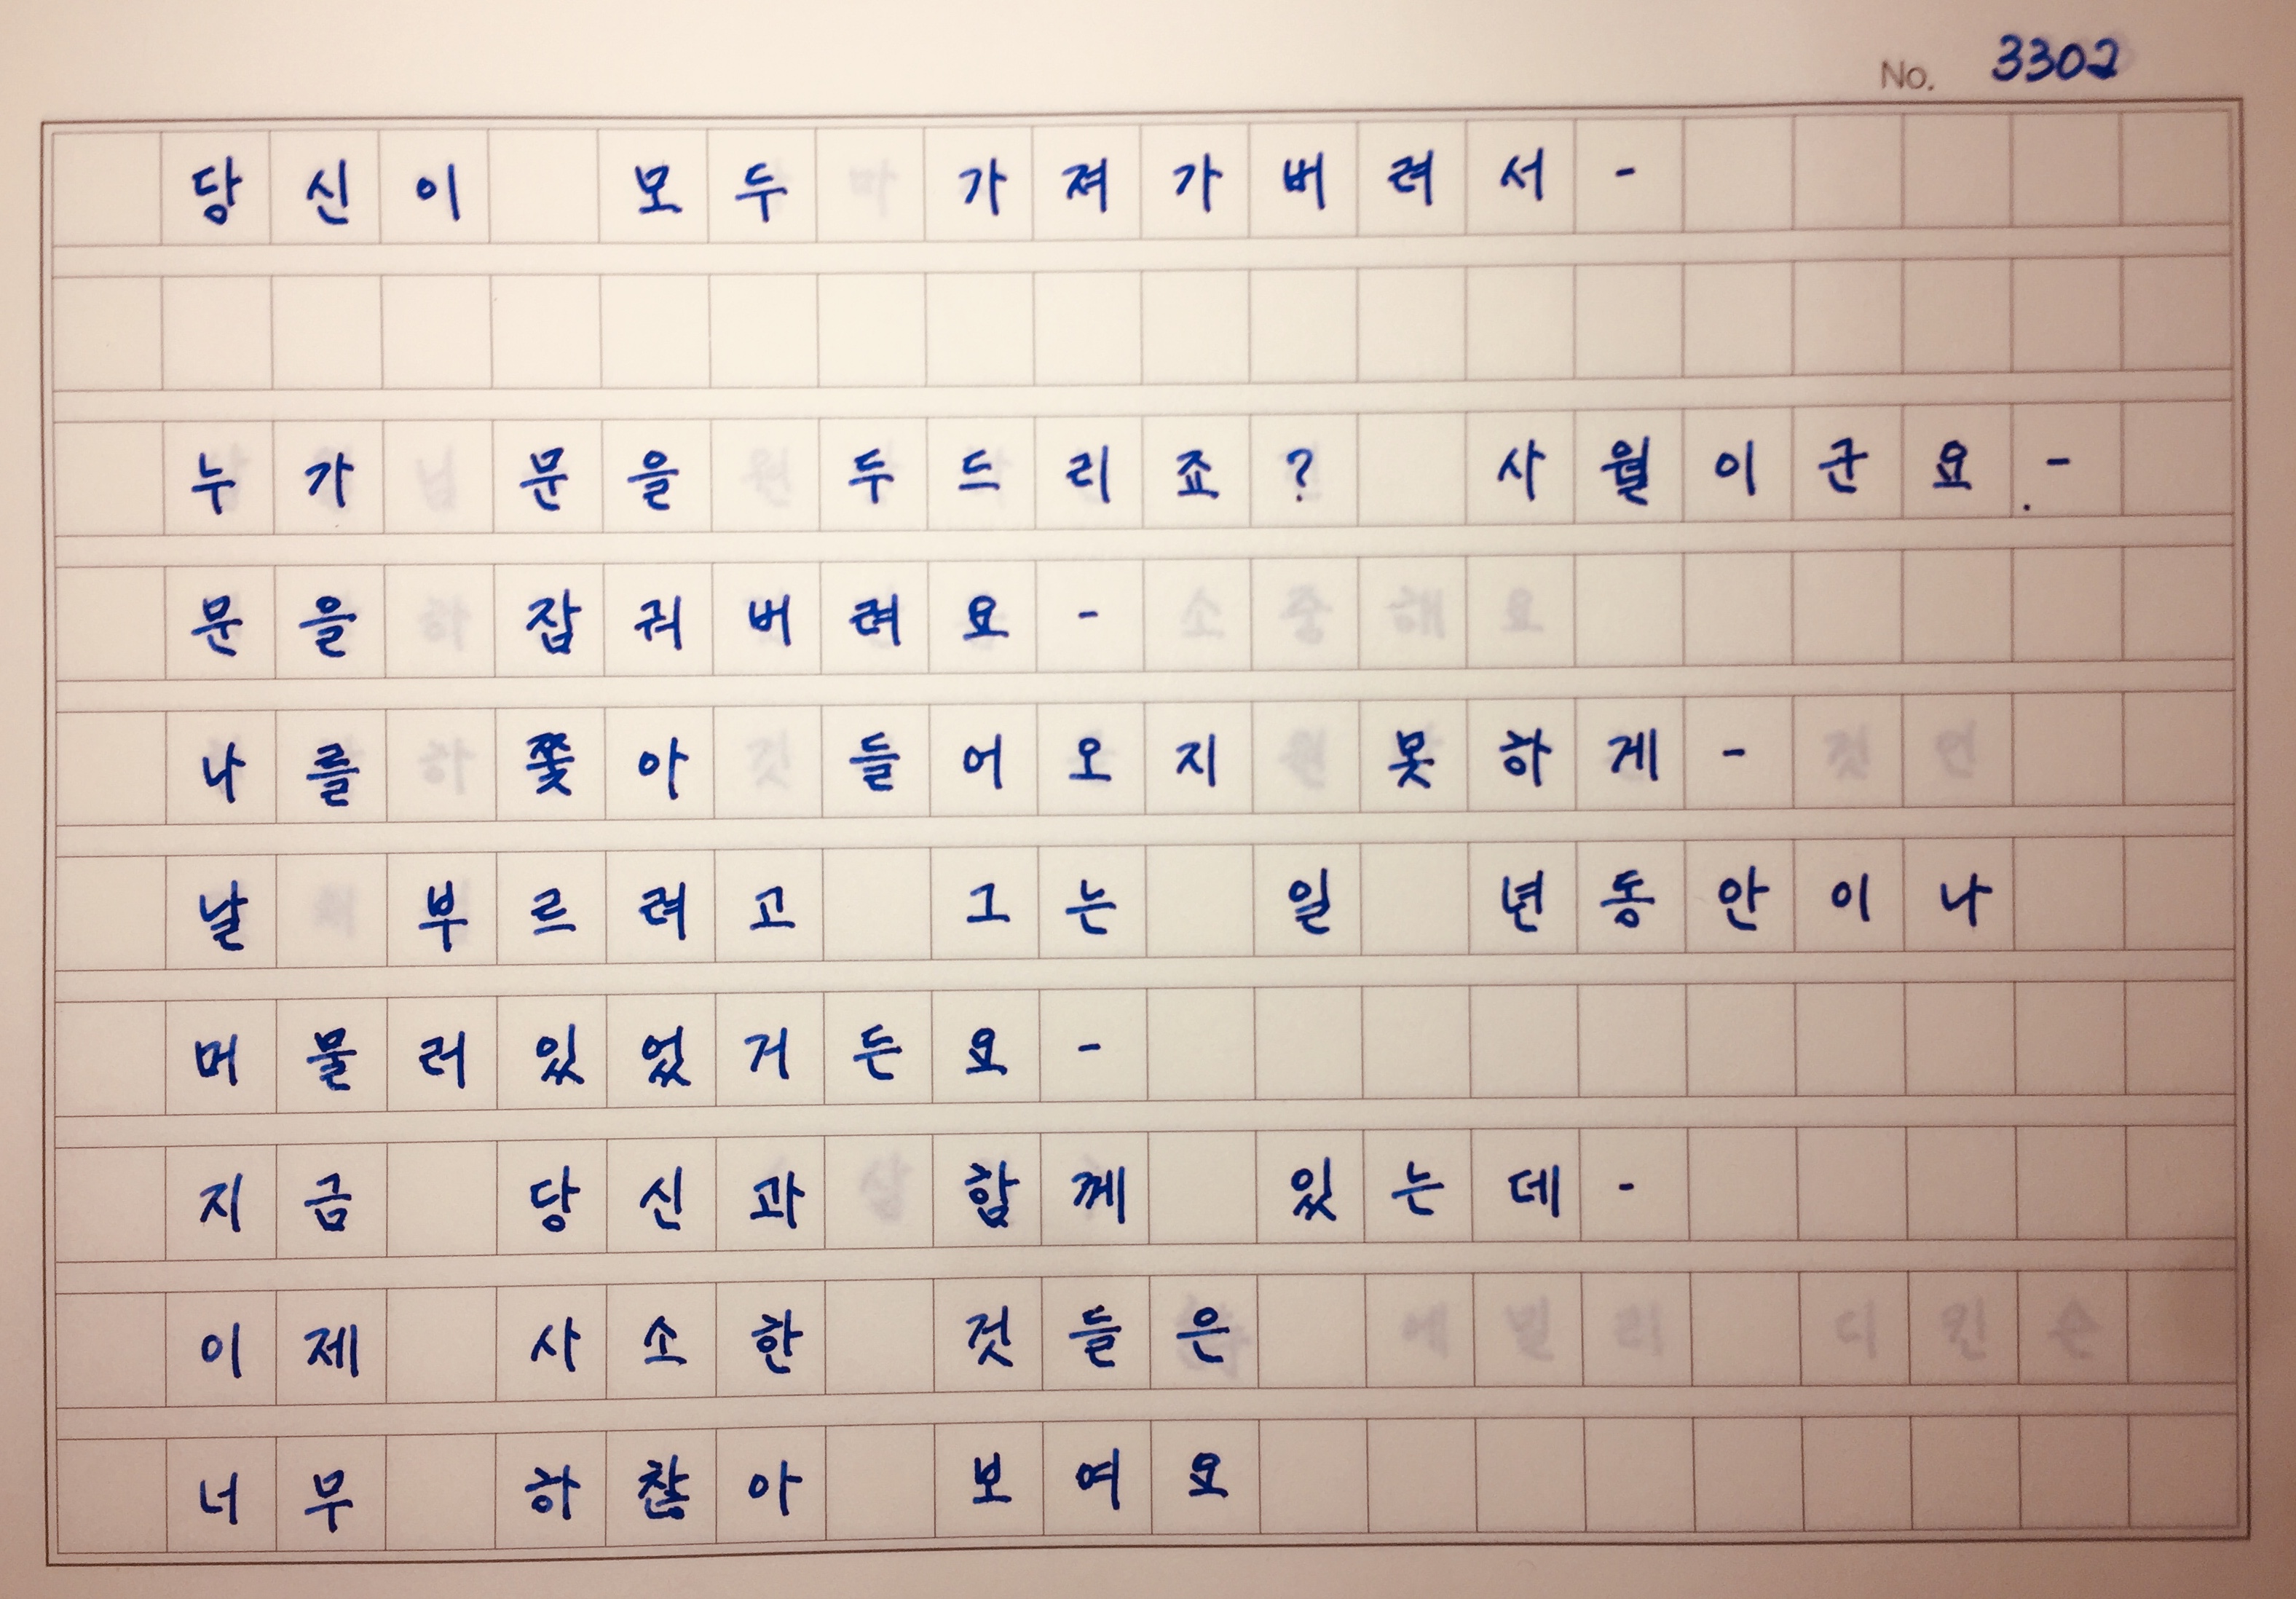 No. 3302
당신이 모두 가져가버려서-
누가 문을 두드리죠? 사월이군요.-
문을 잠궈버려요-
나를 쫓아 들어오지 못하게-
날 부르려고 그는 일 년동안이나
머물러있었거든요-
지금 당신과 함께 있는데-
이제 사소한 것들은
너무 하찮아 보여요